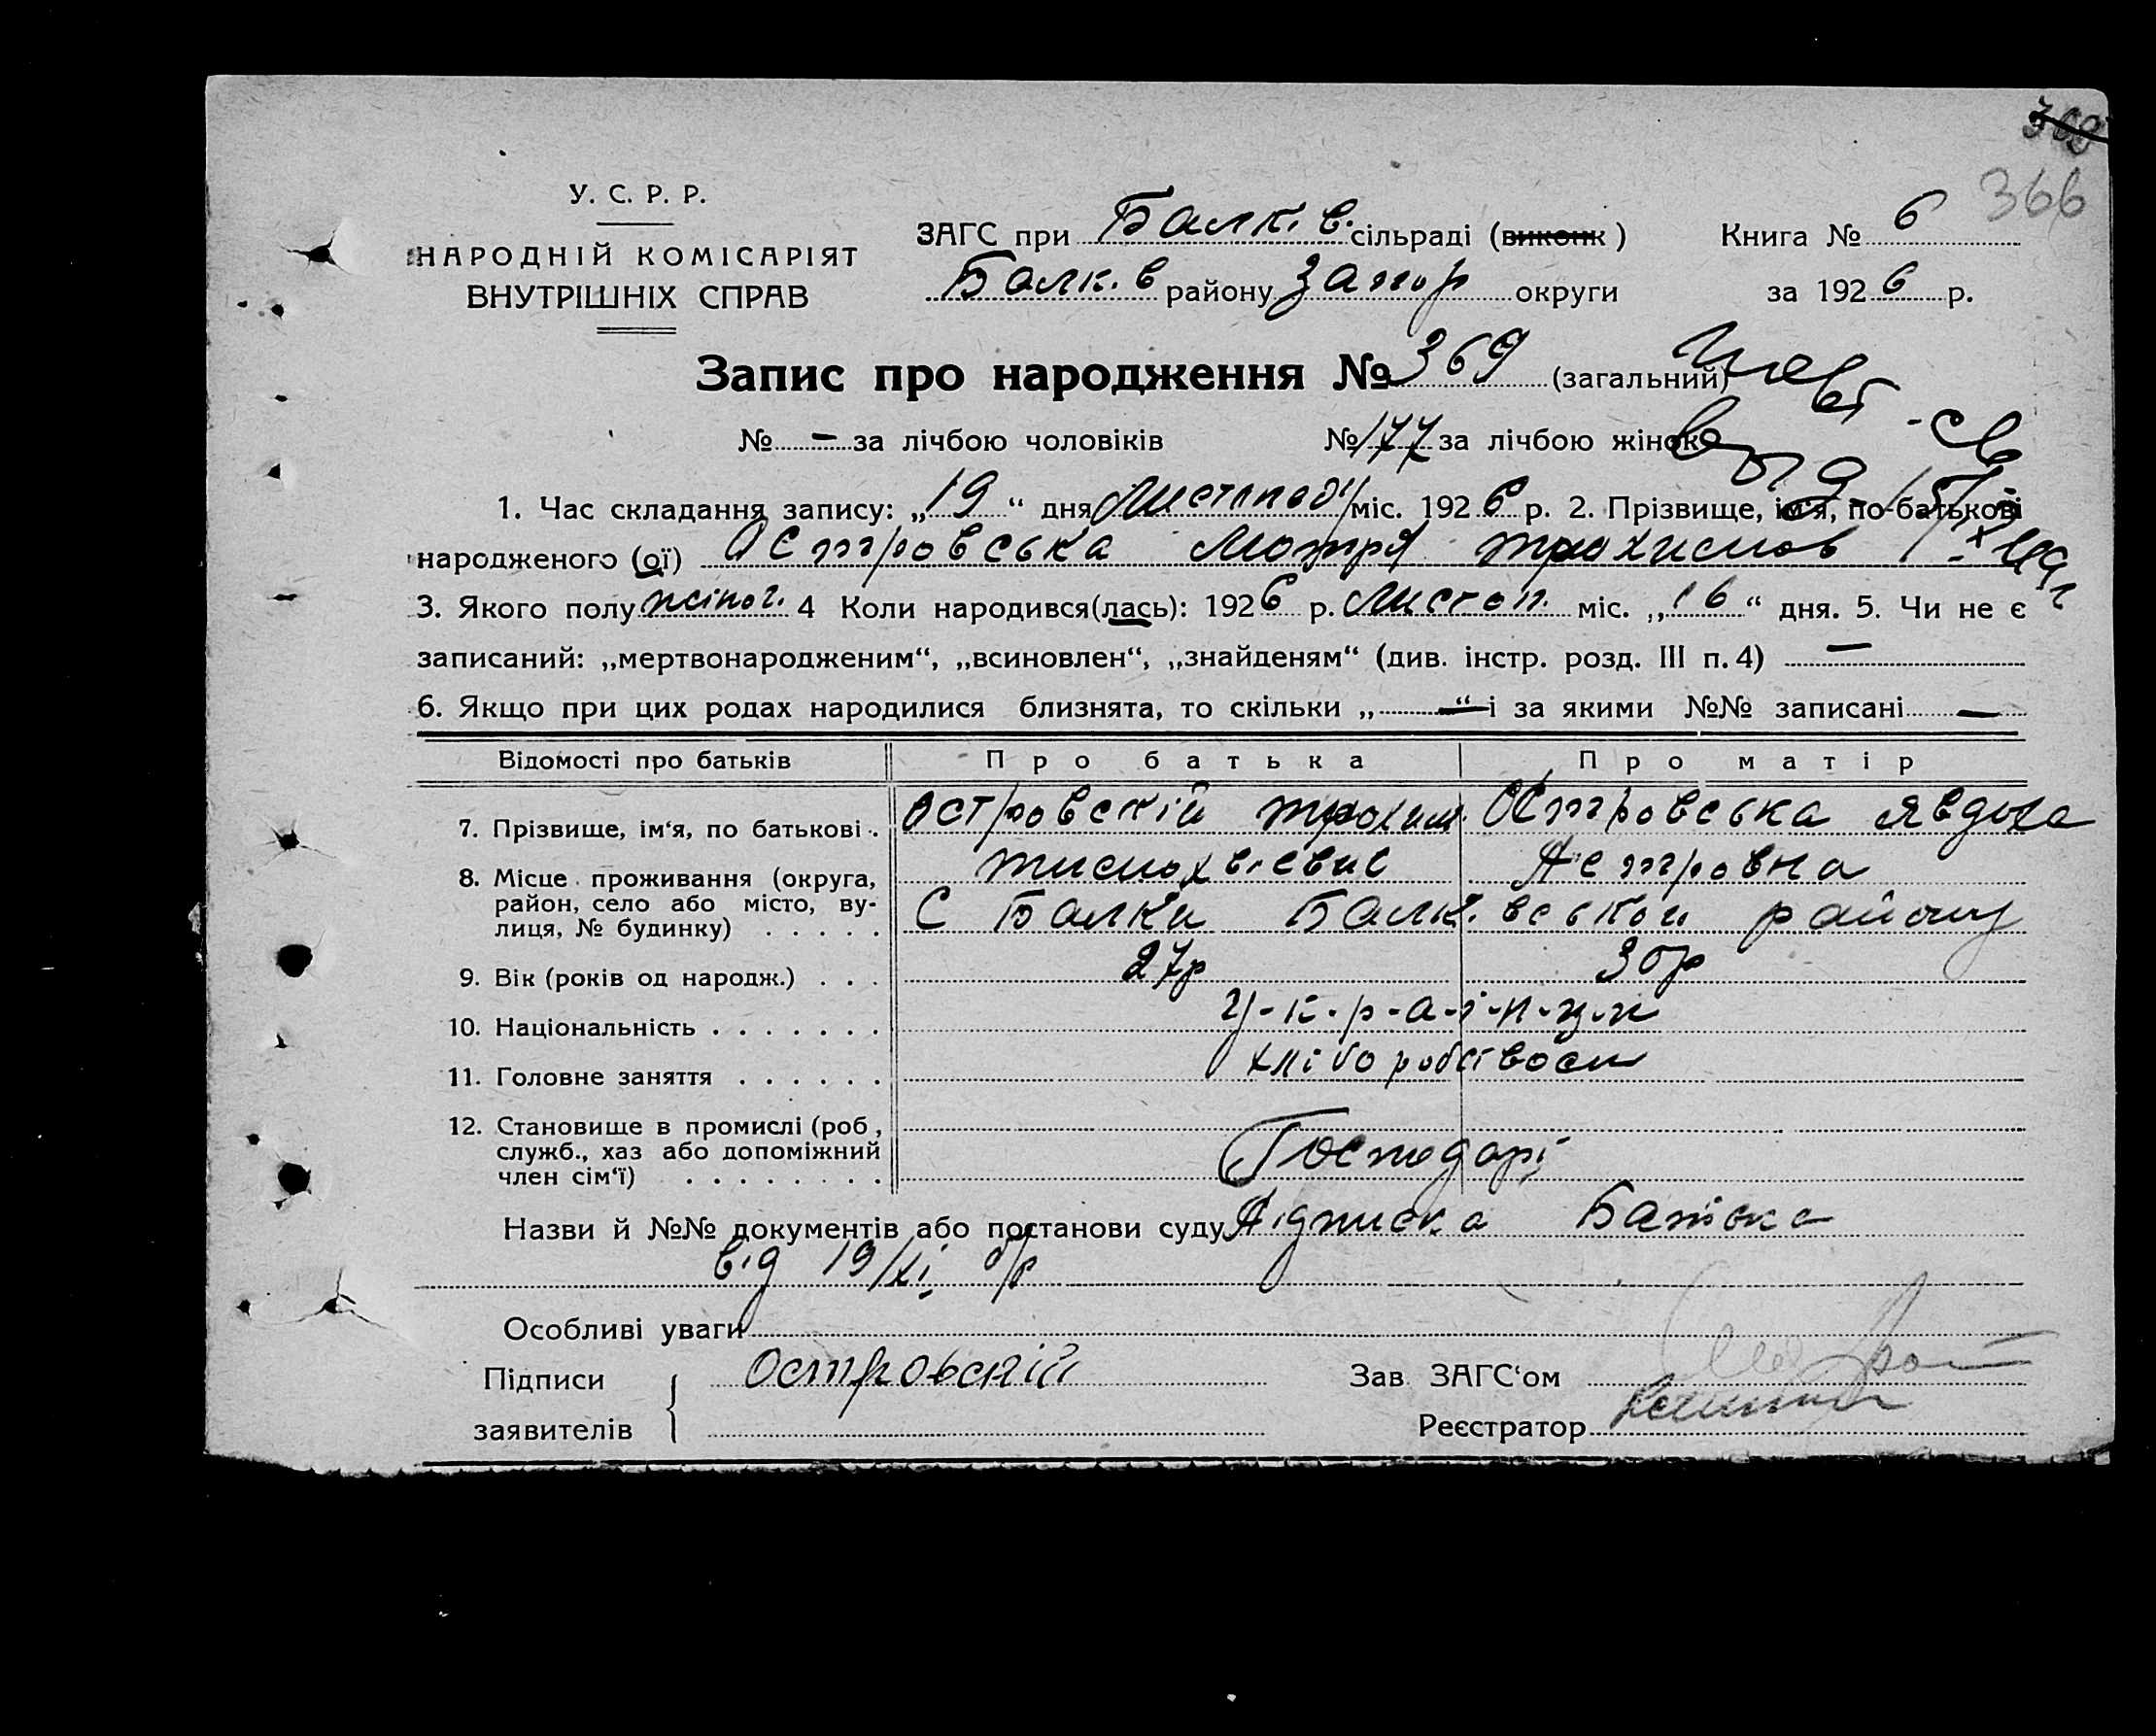 366
У. С. Р. Р.
НАРОДНІЙ КОМІСАРІЯТ
ВНУТРІШНІХ СПРАВ
ЗАГС при Балків. сільраді (виконк)
Книга № 6
Балк. в району Запор округи
за 1926 р.
Запис про народження № 369 (загальний)
№ – за лічбою чоловіків № 177 за лічбою жінок
1. Час складання запису: „19“ дня міс. 1926 р. 2. Прізвище, ім'я, по-батькові
народженого (ої) Островська Мотря Трохимов
3. Якого полу жіноч. 4 Коли народився(лась): 1926 р. Листоп. міс. „16“ дня. 5. Чи не є
записаний: „мертвонародженим“, „всиновлен“, „знайденям“ (див. інстр. розд. III п. 4) —
6. Якщо при цих родах народилися близнята, то скільки „—“ і за якими №№ записані —
Відомості про батьків Про батька Про матір
7. Прізвище, ім'я, по батькові. Островскій Трохим Островська Явдоха
Петровна
8. Місце проживання (округа, район, село або місто, вулиця, № будинку) С Балки Балківської району
9. Вік (років од народж.) 27р 30р
10. Національність у-к-р-а-ї-н-ц-и
11. Головне заняття хліборобством
12. Становище в промислі (роб, служб., хаз або допоміжний член сім'ї) Господарі
Назви й №№ документів або постанови суду Підписка Батька
від 19/XI б/р
Особливі уваги
Підписи
заявителів
Островскій
Зав ЗАГС'ом
Реєстратор